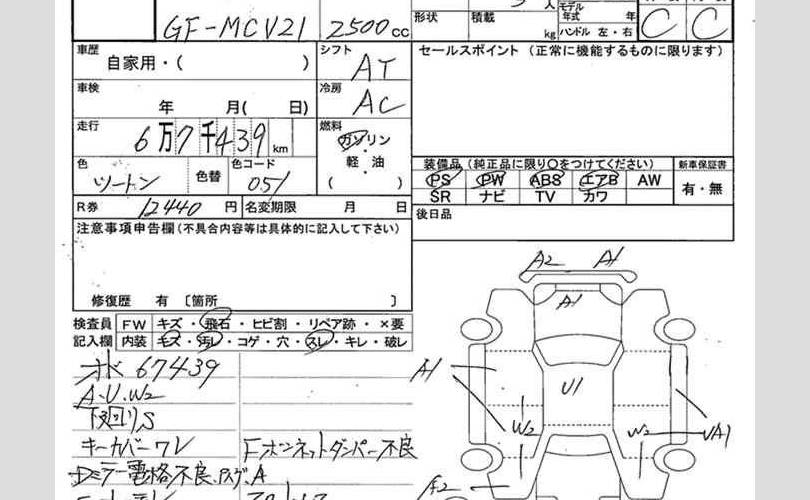 GF-MCV21 2500cc
形状 積載 kg
人
モデル年式 年
ハンドル 左・右
C C
車歴 自家用・( )
シフト AT
セールスポイント (正常に機能するものに限ります)
車検 年 月( 日)
冷房 AC
走行 6万7千439km
燃料 ガソリン
軽・油
( )
色 ツートン 色替 色コード 051
装備品 (純正品に限り○をつけてください)
新車保証書
PS PW ABS エアB AW
有・無
SR ナビ TV カワ
R券 12440円 名変期限 月 日
後日品
注意事項申告欄 (不具合内容等は具体的に記入して下さい)
修復歴 有 〔箇所 〕
検査員記入欄
FW キズ・飛石・ヒビ割・リペア跡・×要
内装 キズ・汚レ・コゲ・穴・スレ・キレ・破レ
A2 A1
A1
A1
U1
W2 W2
A2
67439
A.U.W2
下回りS
キーカバーワレ
Fボンネットダンパー不良
ミラー電格不良